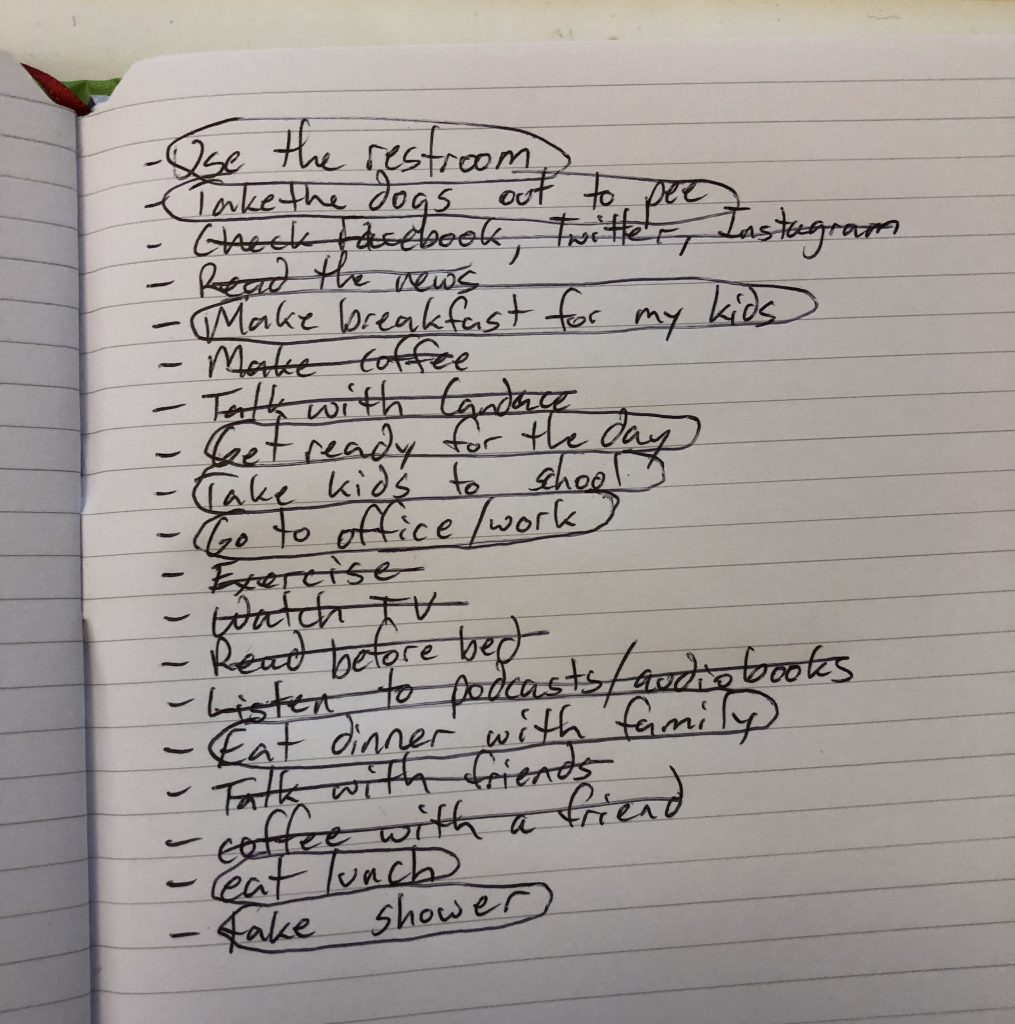 - Use the restroom
- Take the dogs out to pee
- Check facebook, Twitter, Instagram
- Read the news
- Make breakfast for my kids
- Make coffee
- Talk with Candace
- Get ready for the day
- Take kids to school
- Go to office/work
- Exercise
- Watch TV
- Read before bed
- Listen to podcasts/audiobooks
- Eat dinner with family
- Talk with friends
- coffee with a friend
- eat lunch
- take shower